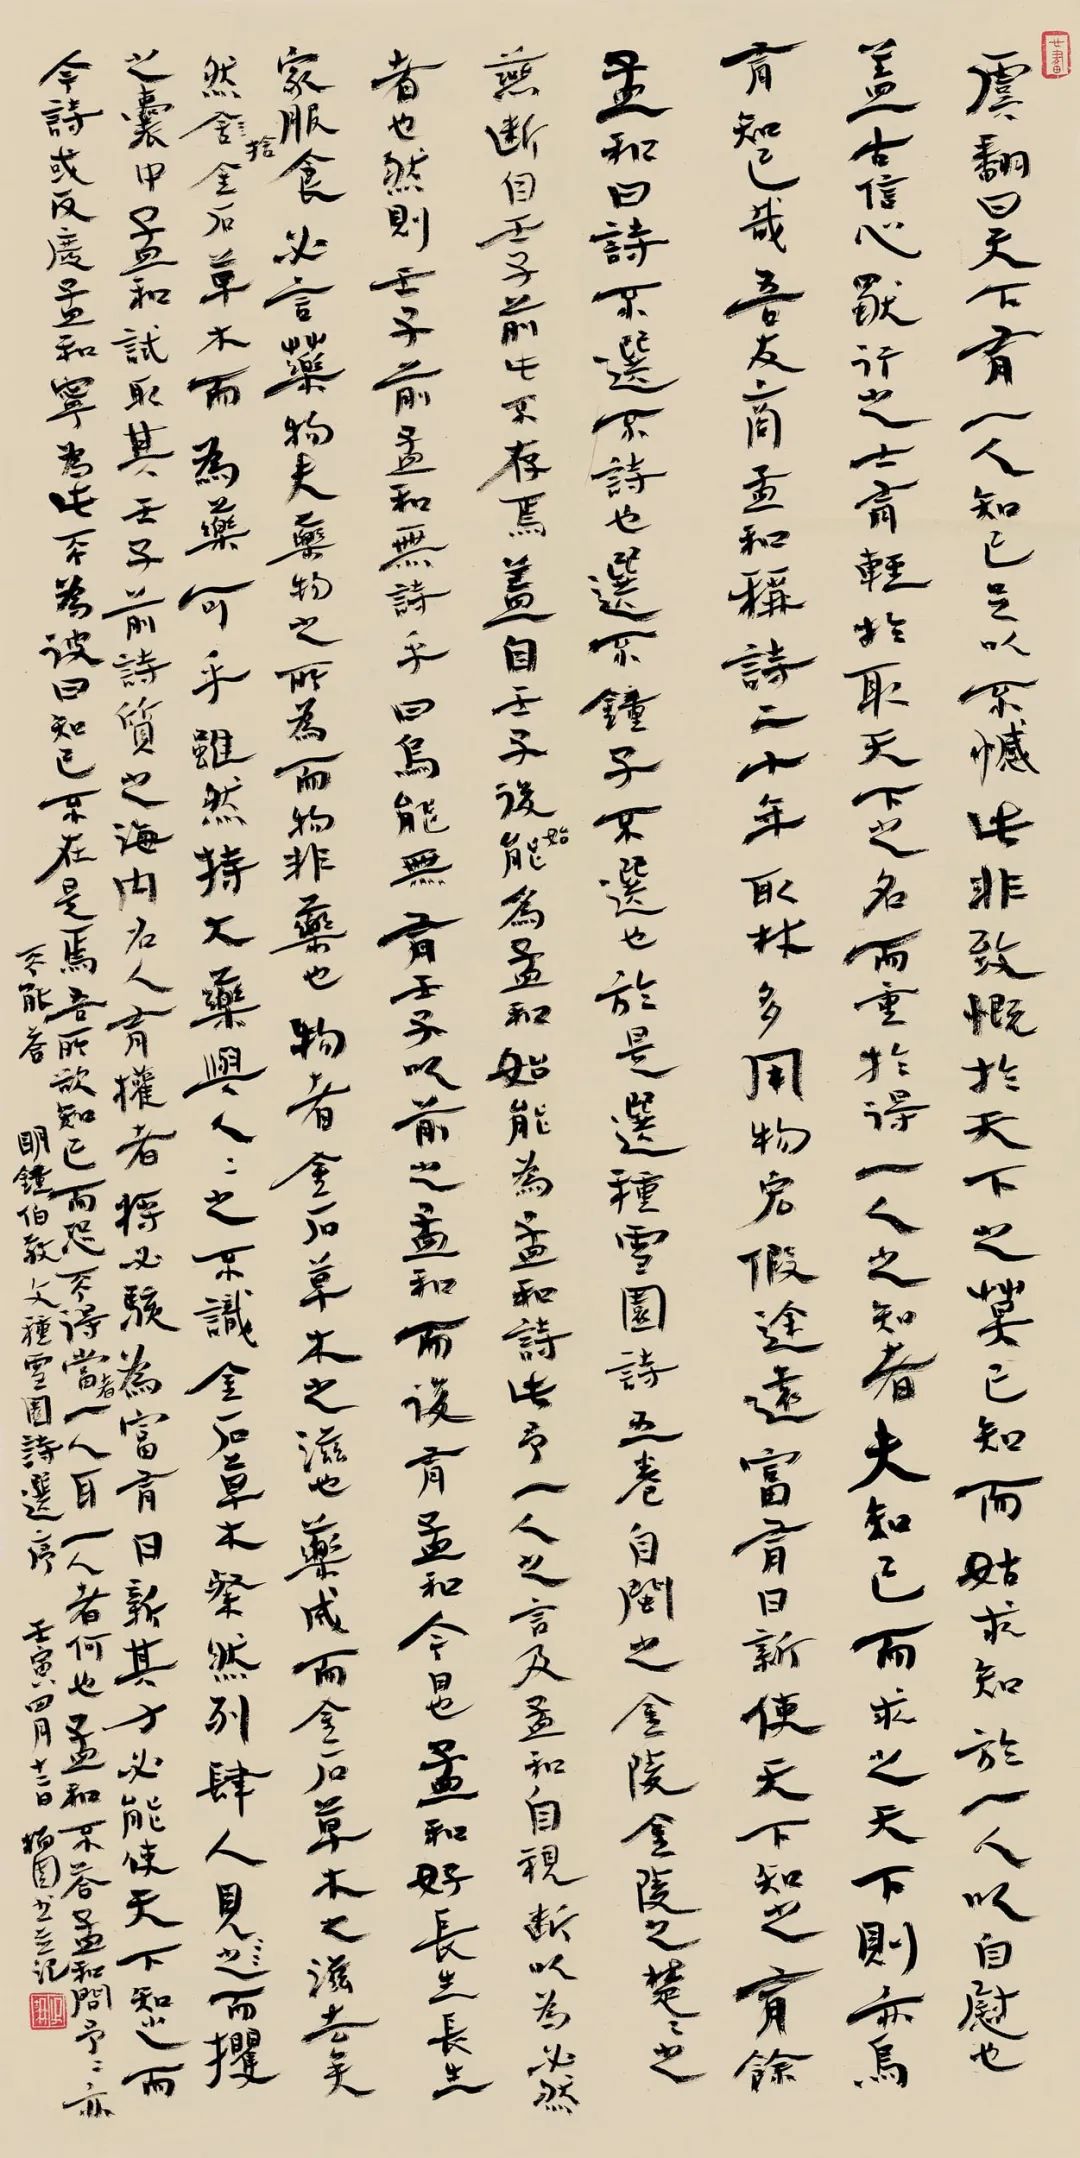 虞翻曰天下有一人知己足以不憾此非致慨於天下之莫己知而姑求知於一人以自慰也
蓋古信心獨行之士有輕於取天下之名而重於得一人之知者夫知己而求之天下則亦烏
有知己哉吾友商孟和稱詩二十年取材多用物宏假途遠富有日新使天下知之有餘
孟和曰詩不選不詩也選不鍾子不選也於是選種雪園詩五卷自閩之金陵金陵之楚之
燕斷自壬子前此不存焉蓋自壬子後能始為孟和始能為孟和詩此予一人之言及孟和自視斷以為必然
者也然則壬子前孟和無詩乎曰烏能無有壬子以前之孟和而後有孟和今日也孟和好長生長生
家服食必言藥物夫藥物之所為而物非藥也物者金石草木之滋也藥成而金石草木之滋去矣
然舍捨金石草木而為藥何乎雖然持大藥與人人之不識金石草木粲然列肆人見之見之而攫
之囊中孟和試取其壬子前詩質之海內名人有權者將必駭為富有日新其力必能使天下知之而
今詩或反廢孟和寧為此不為彼曰知己不在是焉吾所欲知己而恐不得當者一人耳一人者何也孟和不答孟和問予予亦
不能答 明鍾伯敬文種雪園詩選序 壬寅四月十二日 楊園書並記